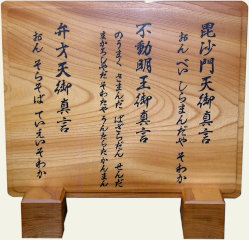 毘沙門天御真言
おん べいしらまんだや そわか
不動明王御真言
のうまく さまんだ ばざらだん せんだ
まかろしやだ そわたや うんたらた かんまん
弁才天御真言
おん そらそば ていえいそわか